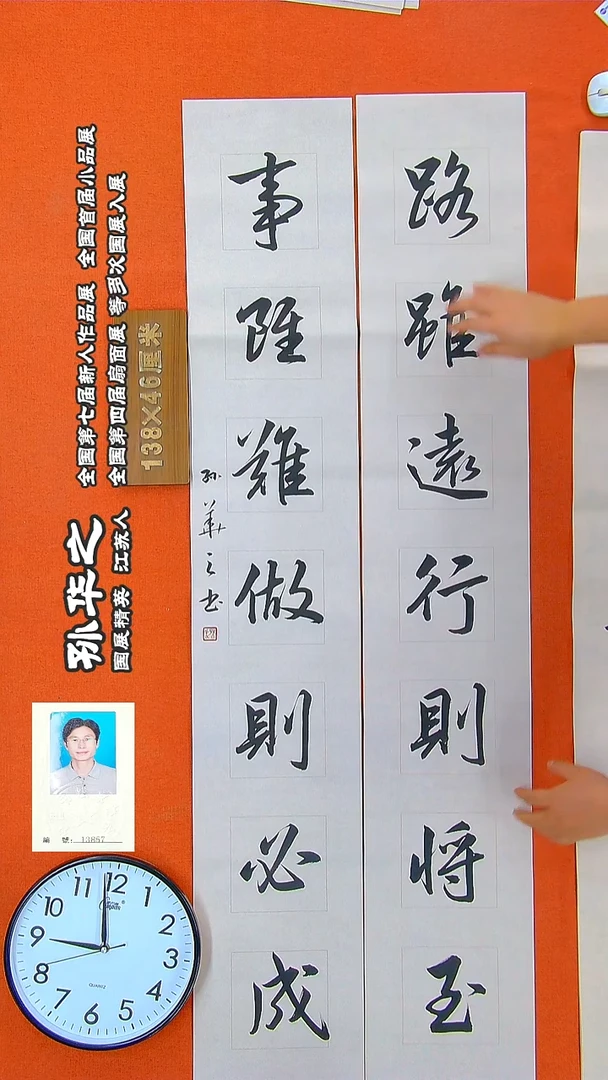 路雖遠行則将至
事雖難做則必成
孙華之书
全国第七届新人作品展 全国首届小品展
全国第四届扇面展 等多次国展入展
孙华之
国展精英 江苏人
138×46厘米
編 號: 13887
12
1
2
3
4
5
6
7
8
9
10
11
QUARTZ